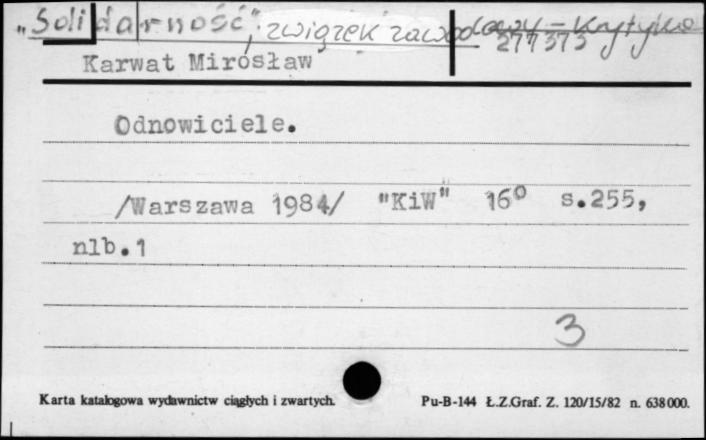 „Solidarność", związek zawodowy – krytyka
277373
Karwat Mirosław
Odnowiciele.
/Warszawa 1984/ "KiW" 16° s.255,
nlb.1
3
Karta katalogowa wydawnictw ciągłych i zwartych. Pu-B-144 Ł.Z.Graf. Z. 120/15/82 n. 638000.